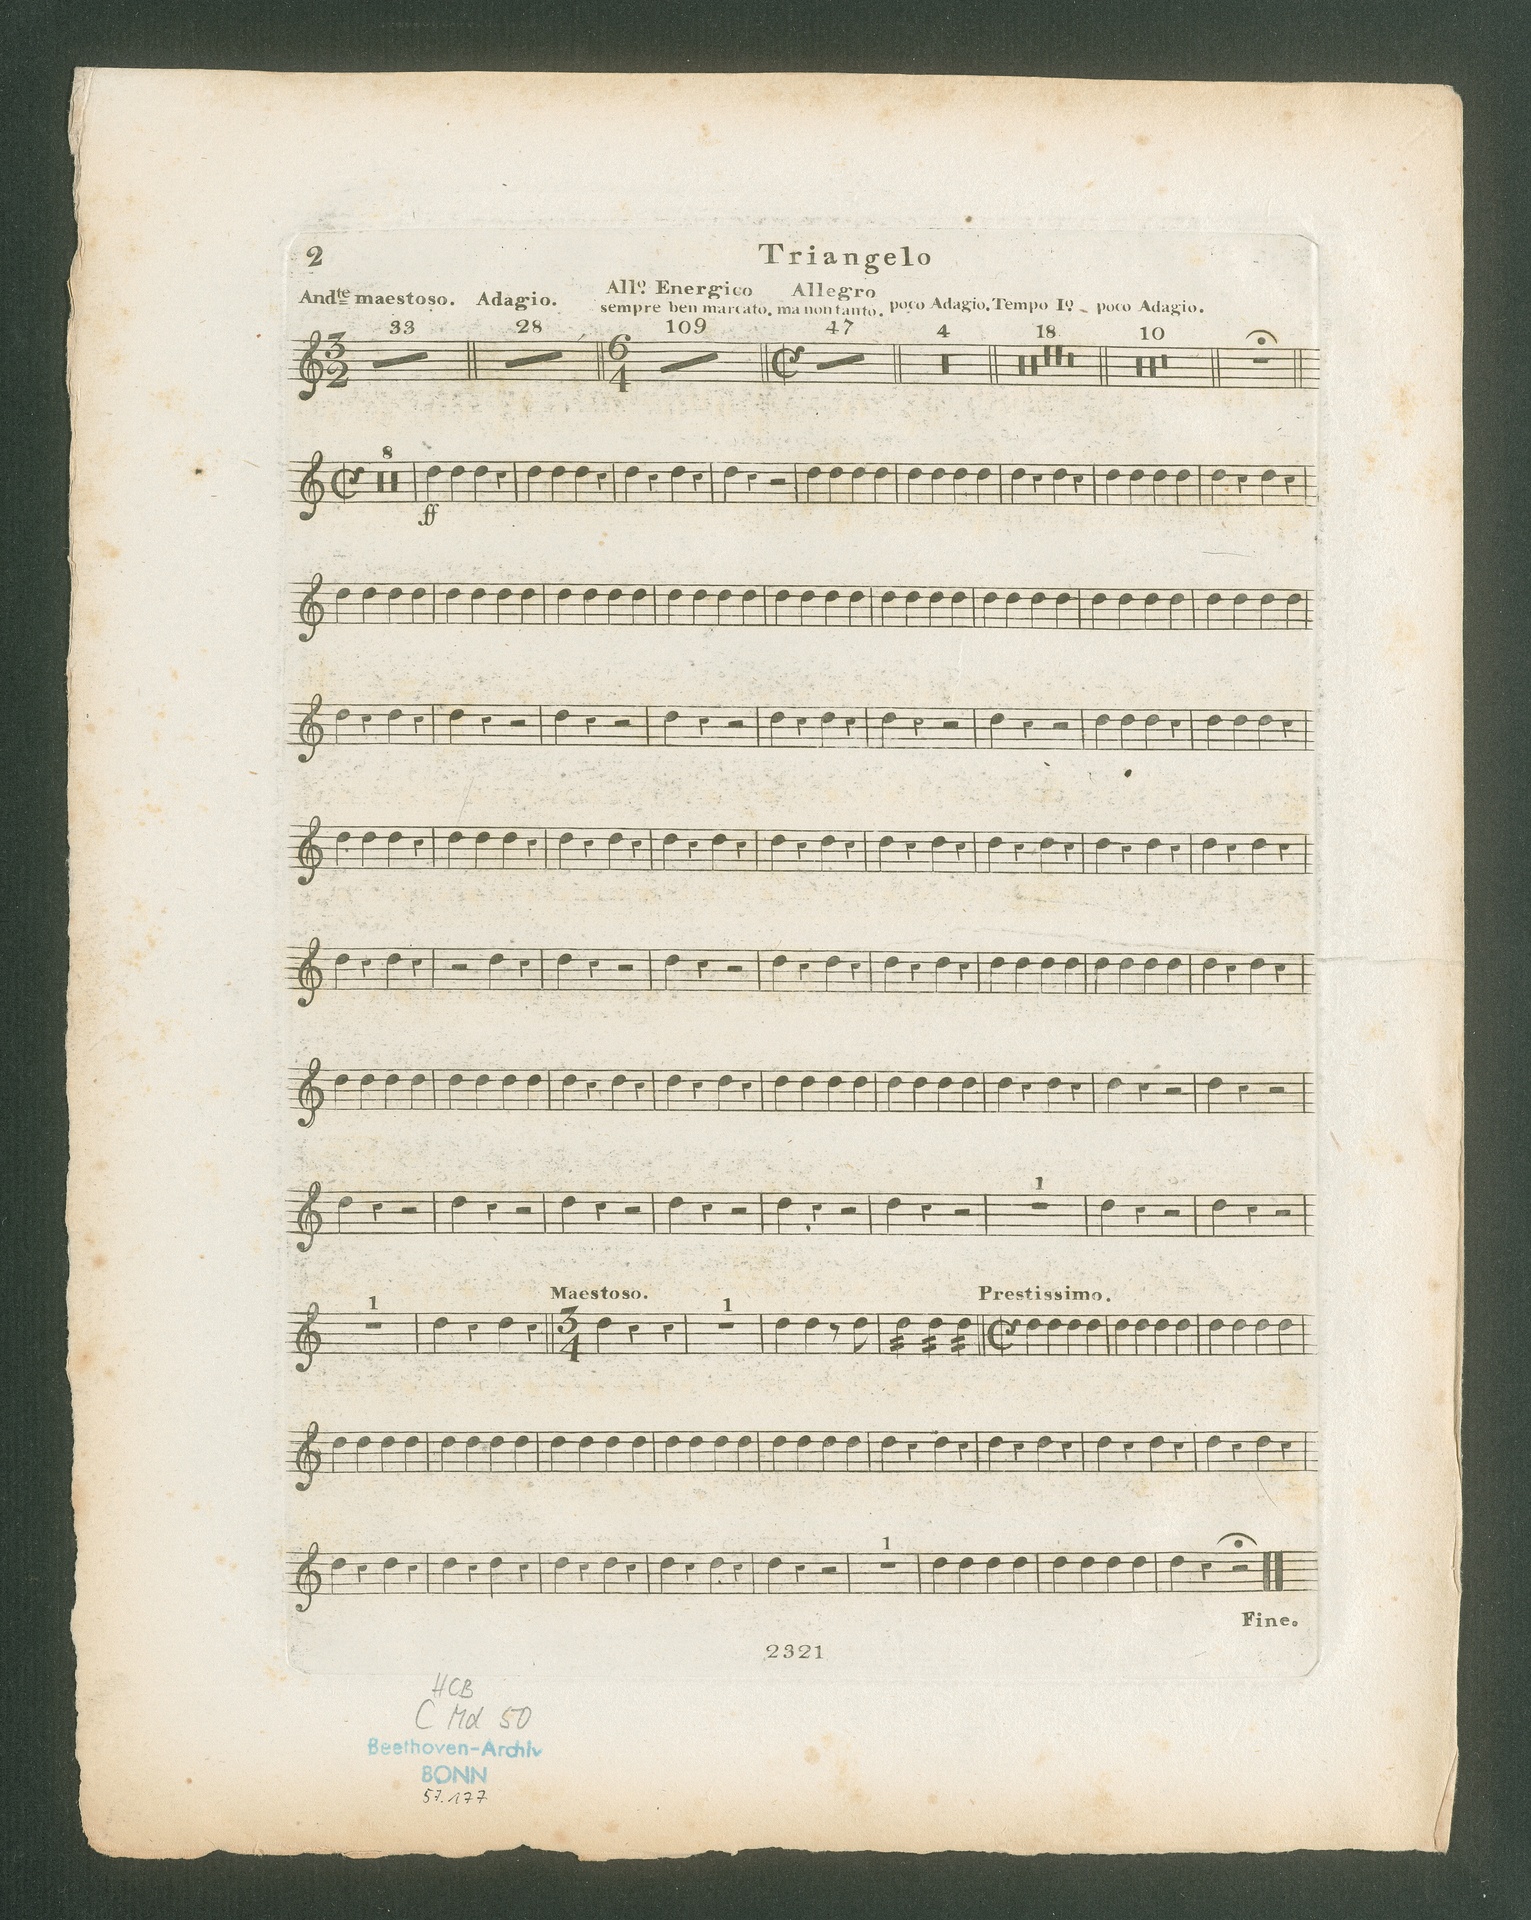 2
Triangelo
Andte maestoso. Adagio. Allo. Energico Allegro
sempre ben marcato. ma non tanto. poco Adagio. Tempo Io. poco Adagio.
33 28 109 47 4 18 10
3
2
6
4
8
ff
1
Maestoso. Prestissimo.
1 1
3
4
1
Fine.
2321
HCB
C Md 50
Beethoven-Archiv
BONN
57.177